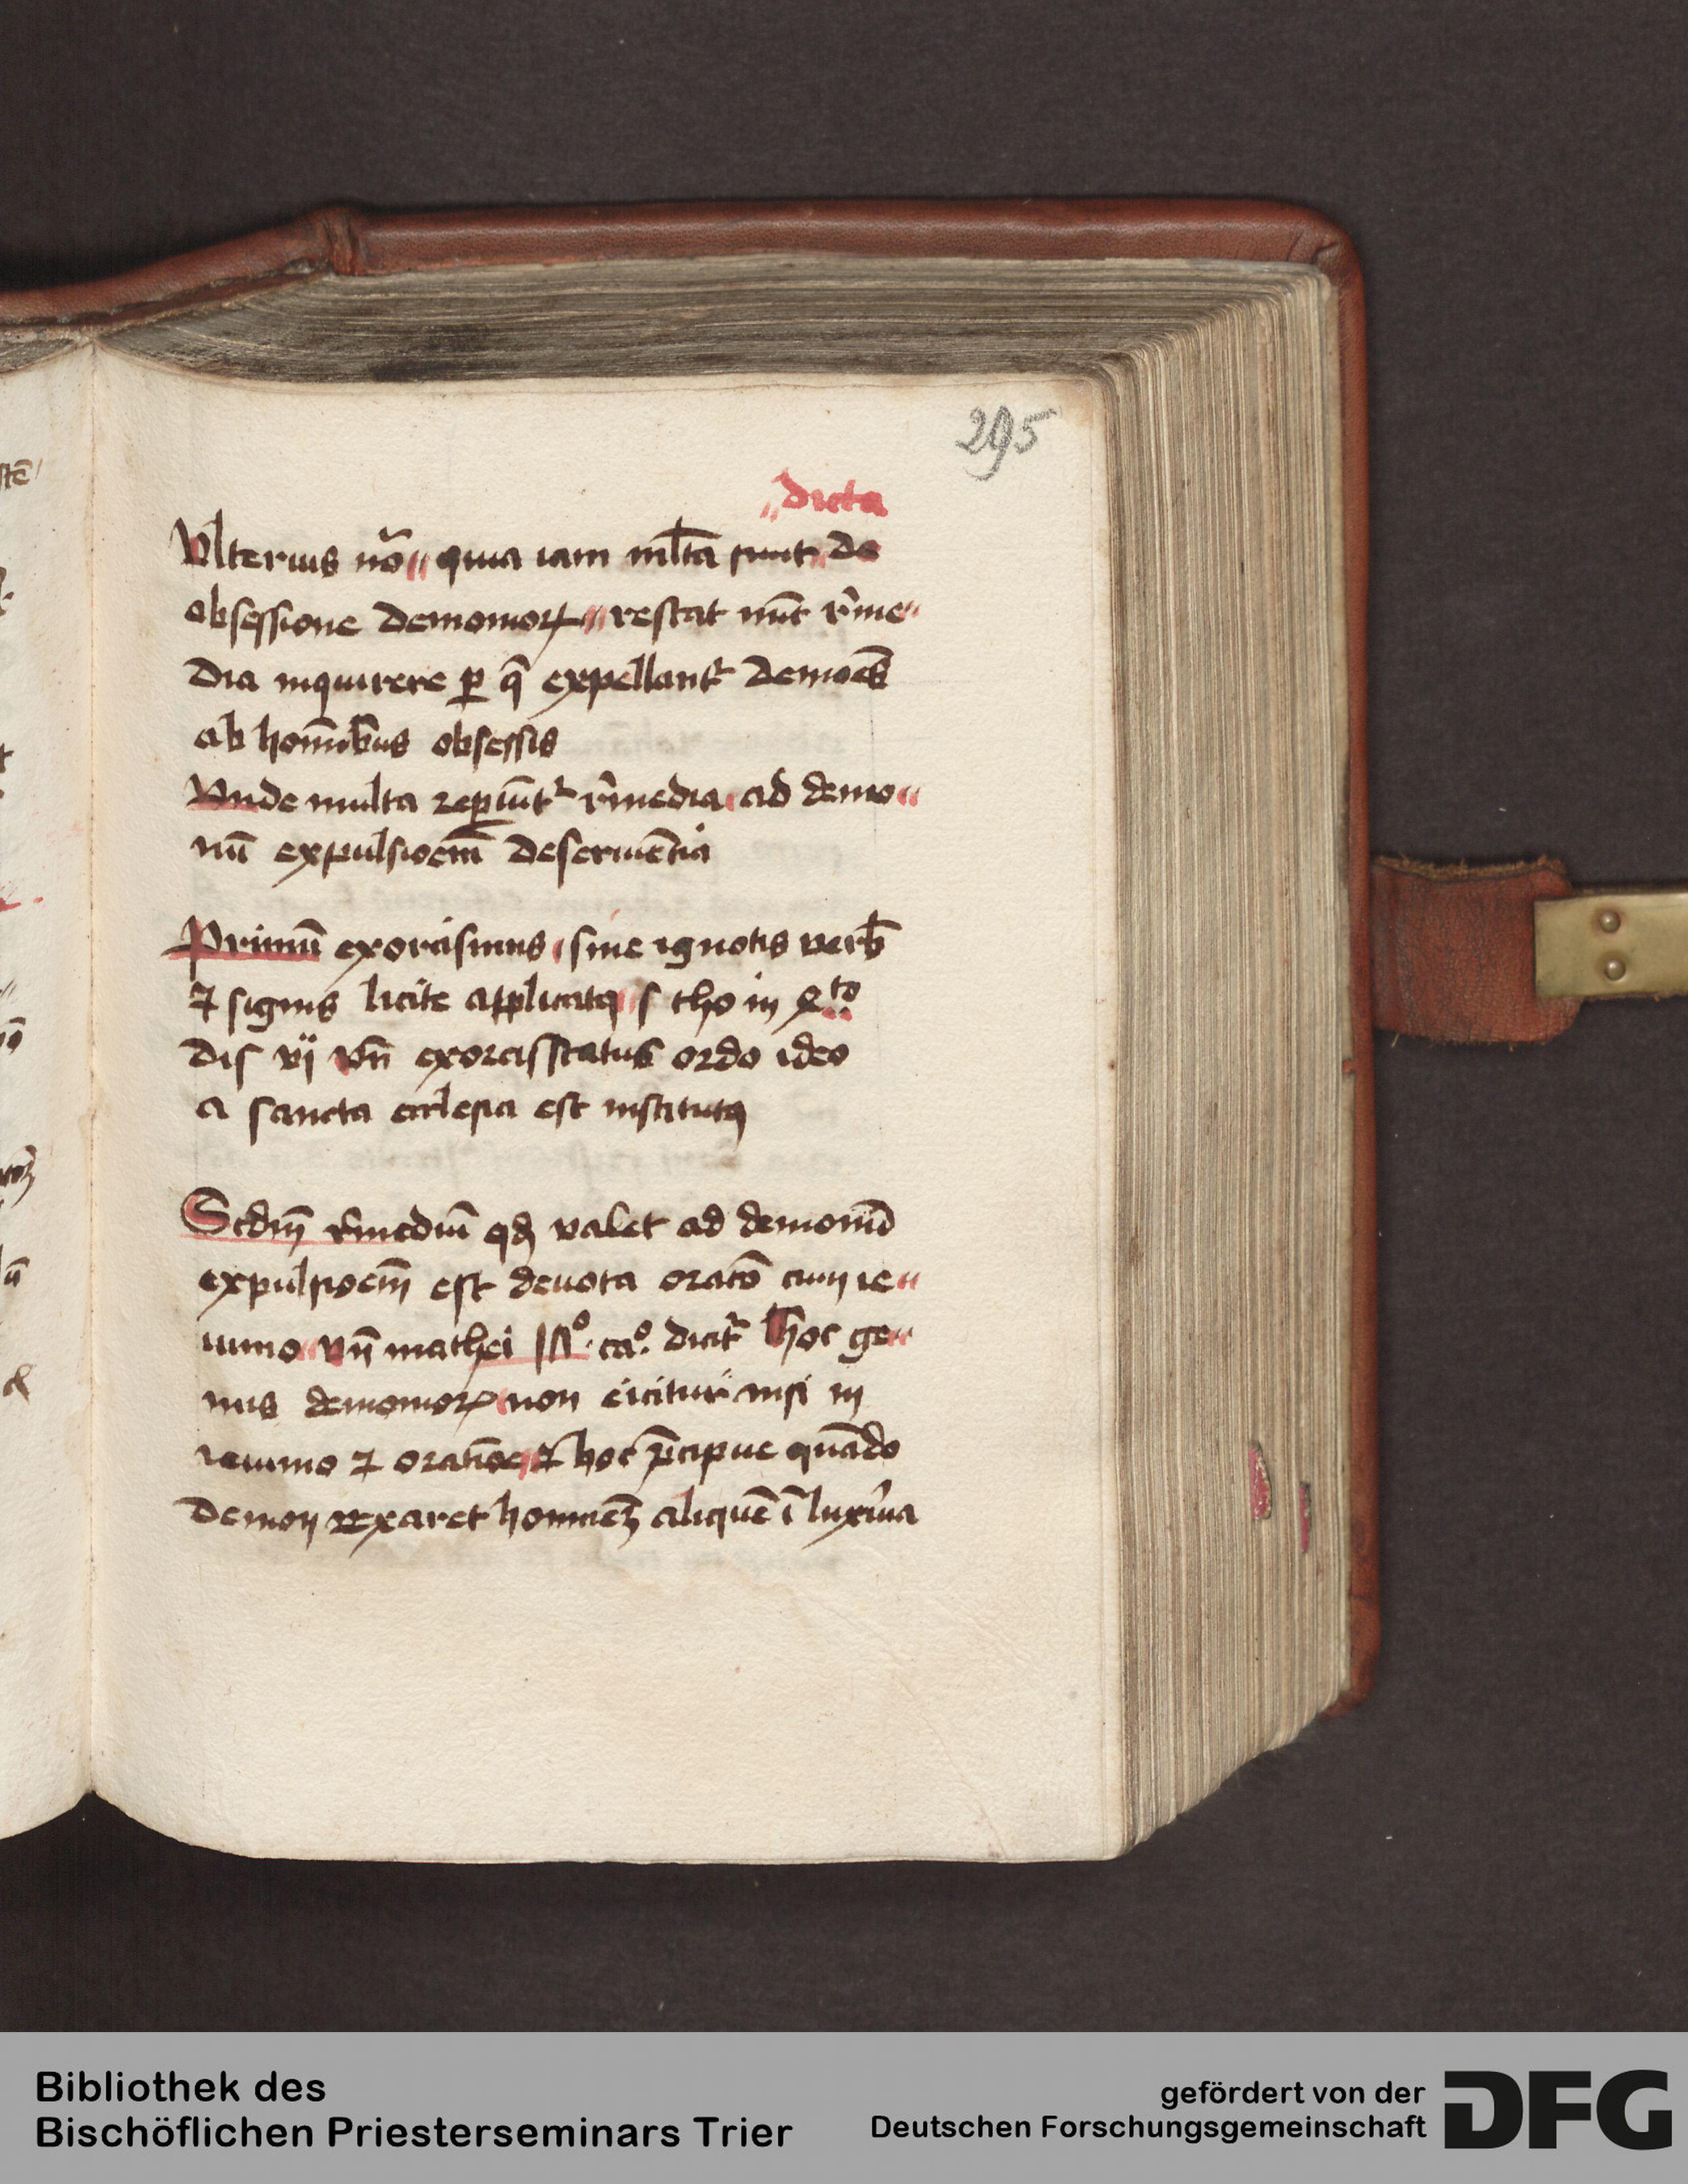 295
dicta
Vlterius nō quia iam ml̄ta sunt de
obsessione demonioꝝ restat nūc rͥme
dia inquirere ꝑ q̄ expellantᷣ demōes
ab homībus obsessis
Vnde multa reperiūtᷣ rͥmedia ad demo
nū expulsioem̄ deseruiētia
Primū exorcismus sine ignotis verb̄
⁊ signis licite applicatꝰ s tho in 4to
dis vij vn̄ exorcisstatus ordo ideo
a sancta ecclesia est institutꝰ
Scdm̄ rͥmediū qd valet ad demonū
expulsioem̄ est deuota oratō cum ie
iunio vn̄ mathei 17º. caº. dicitᷣ hoc ge
nus demonioꝝ non eicitur nisi in
ieiunio ⁊ oratiōe ⁊ hoc p̄cipue quādo
demon vexaret hominēꝫ aliquē ī luxͥria
stē
Bibliothek des
Bischöflichen Priesterseminars Trier
gefördert von der
Deutschen Forschungsgemeinschaft
DFG